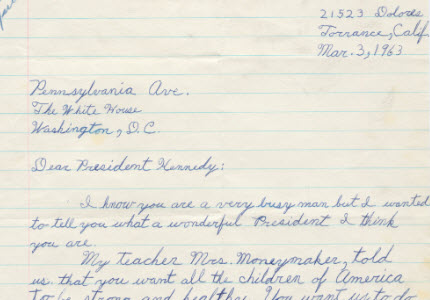 21523 Dolores
Torrance, Calif.
Mar. 3, 1963
Pennsylvania Ave.
The White House
Washington, D.C.
Dear President Kennedy:
I know you are a very busy man but I wanted
to tell you what a wonderful President I think
you are.
My teacher Mrs. Moneymaker, told
us that you want all the children of America
to be strong and healthy. You want us to do